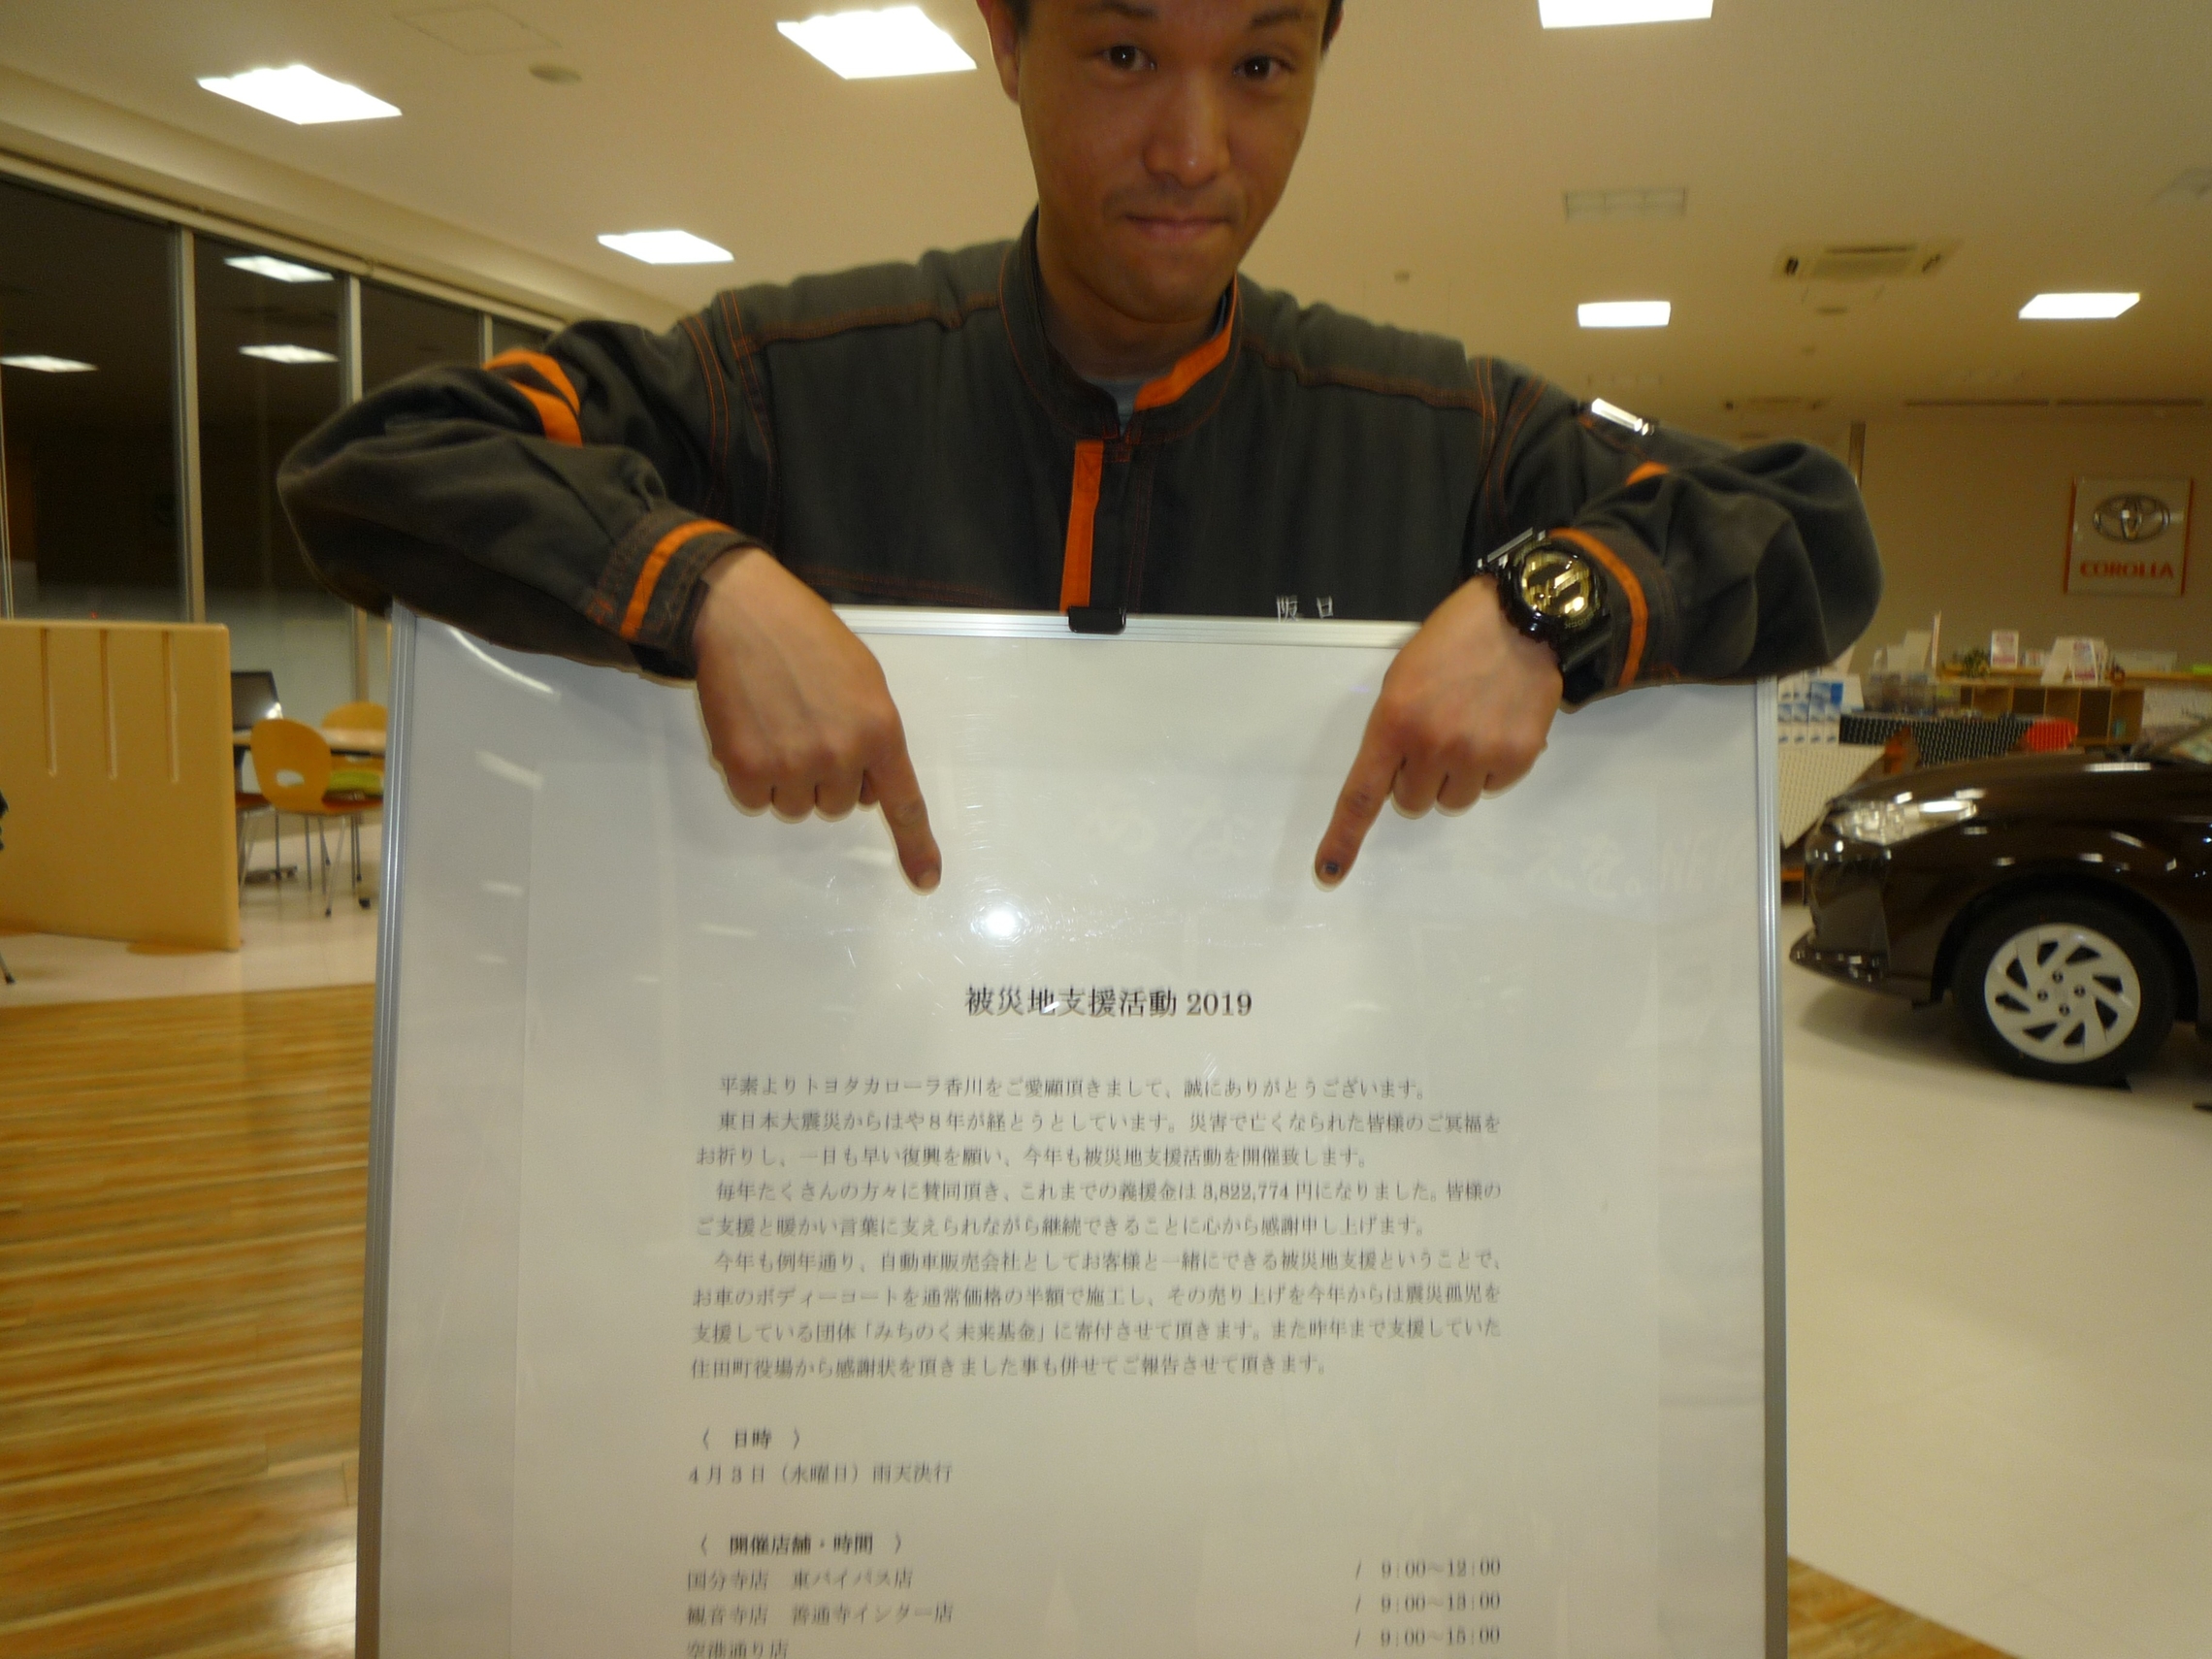 COROLLA
阪口
被災地支援活動 2019
平素よりトヨタカローラ香川をご愛顧頂きまして、誠にありがとうございます。
東日本大震災からはや8年が経とうとしています。災害で亡くなられた皆様のご冥福を
お祈りし、一日も早い復興を願い、今年も被災地支援活動を開催致します。
毎年たくさんの方々に賛同頂き、これまでの義援金は 3,822,774 円になりました。皆様の
ご支援と暖かい言葉に支えられながら継続できることに心から感謝申し上げます。
今年も例年通り、自動車販売会社としてお客様と一緒にできる被災地支援ということで、
お車のボディーコートを通常価格の半額で施工し、その売り上げを今年からは震災孤児を
支援している団体「みちのく未来基金」に寄付させて頂きます。また昨年まで支援していた
住田町役場から感謝状を頂きました事も併せてご報告させて頂きます。
〈 日時 〉
4月3日（水曜日）雨天決行
〈 開催店舗・時間 〉
国分寺店 東バイパス店 / 9:00～12:00
観音寺店 善通寺インター店 / 9:00～13:00
空港通り店 / 9:00～15:00